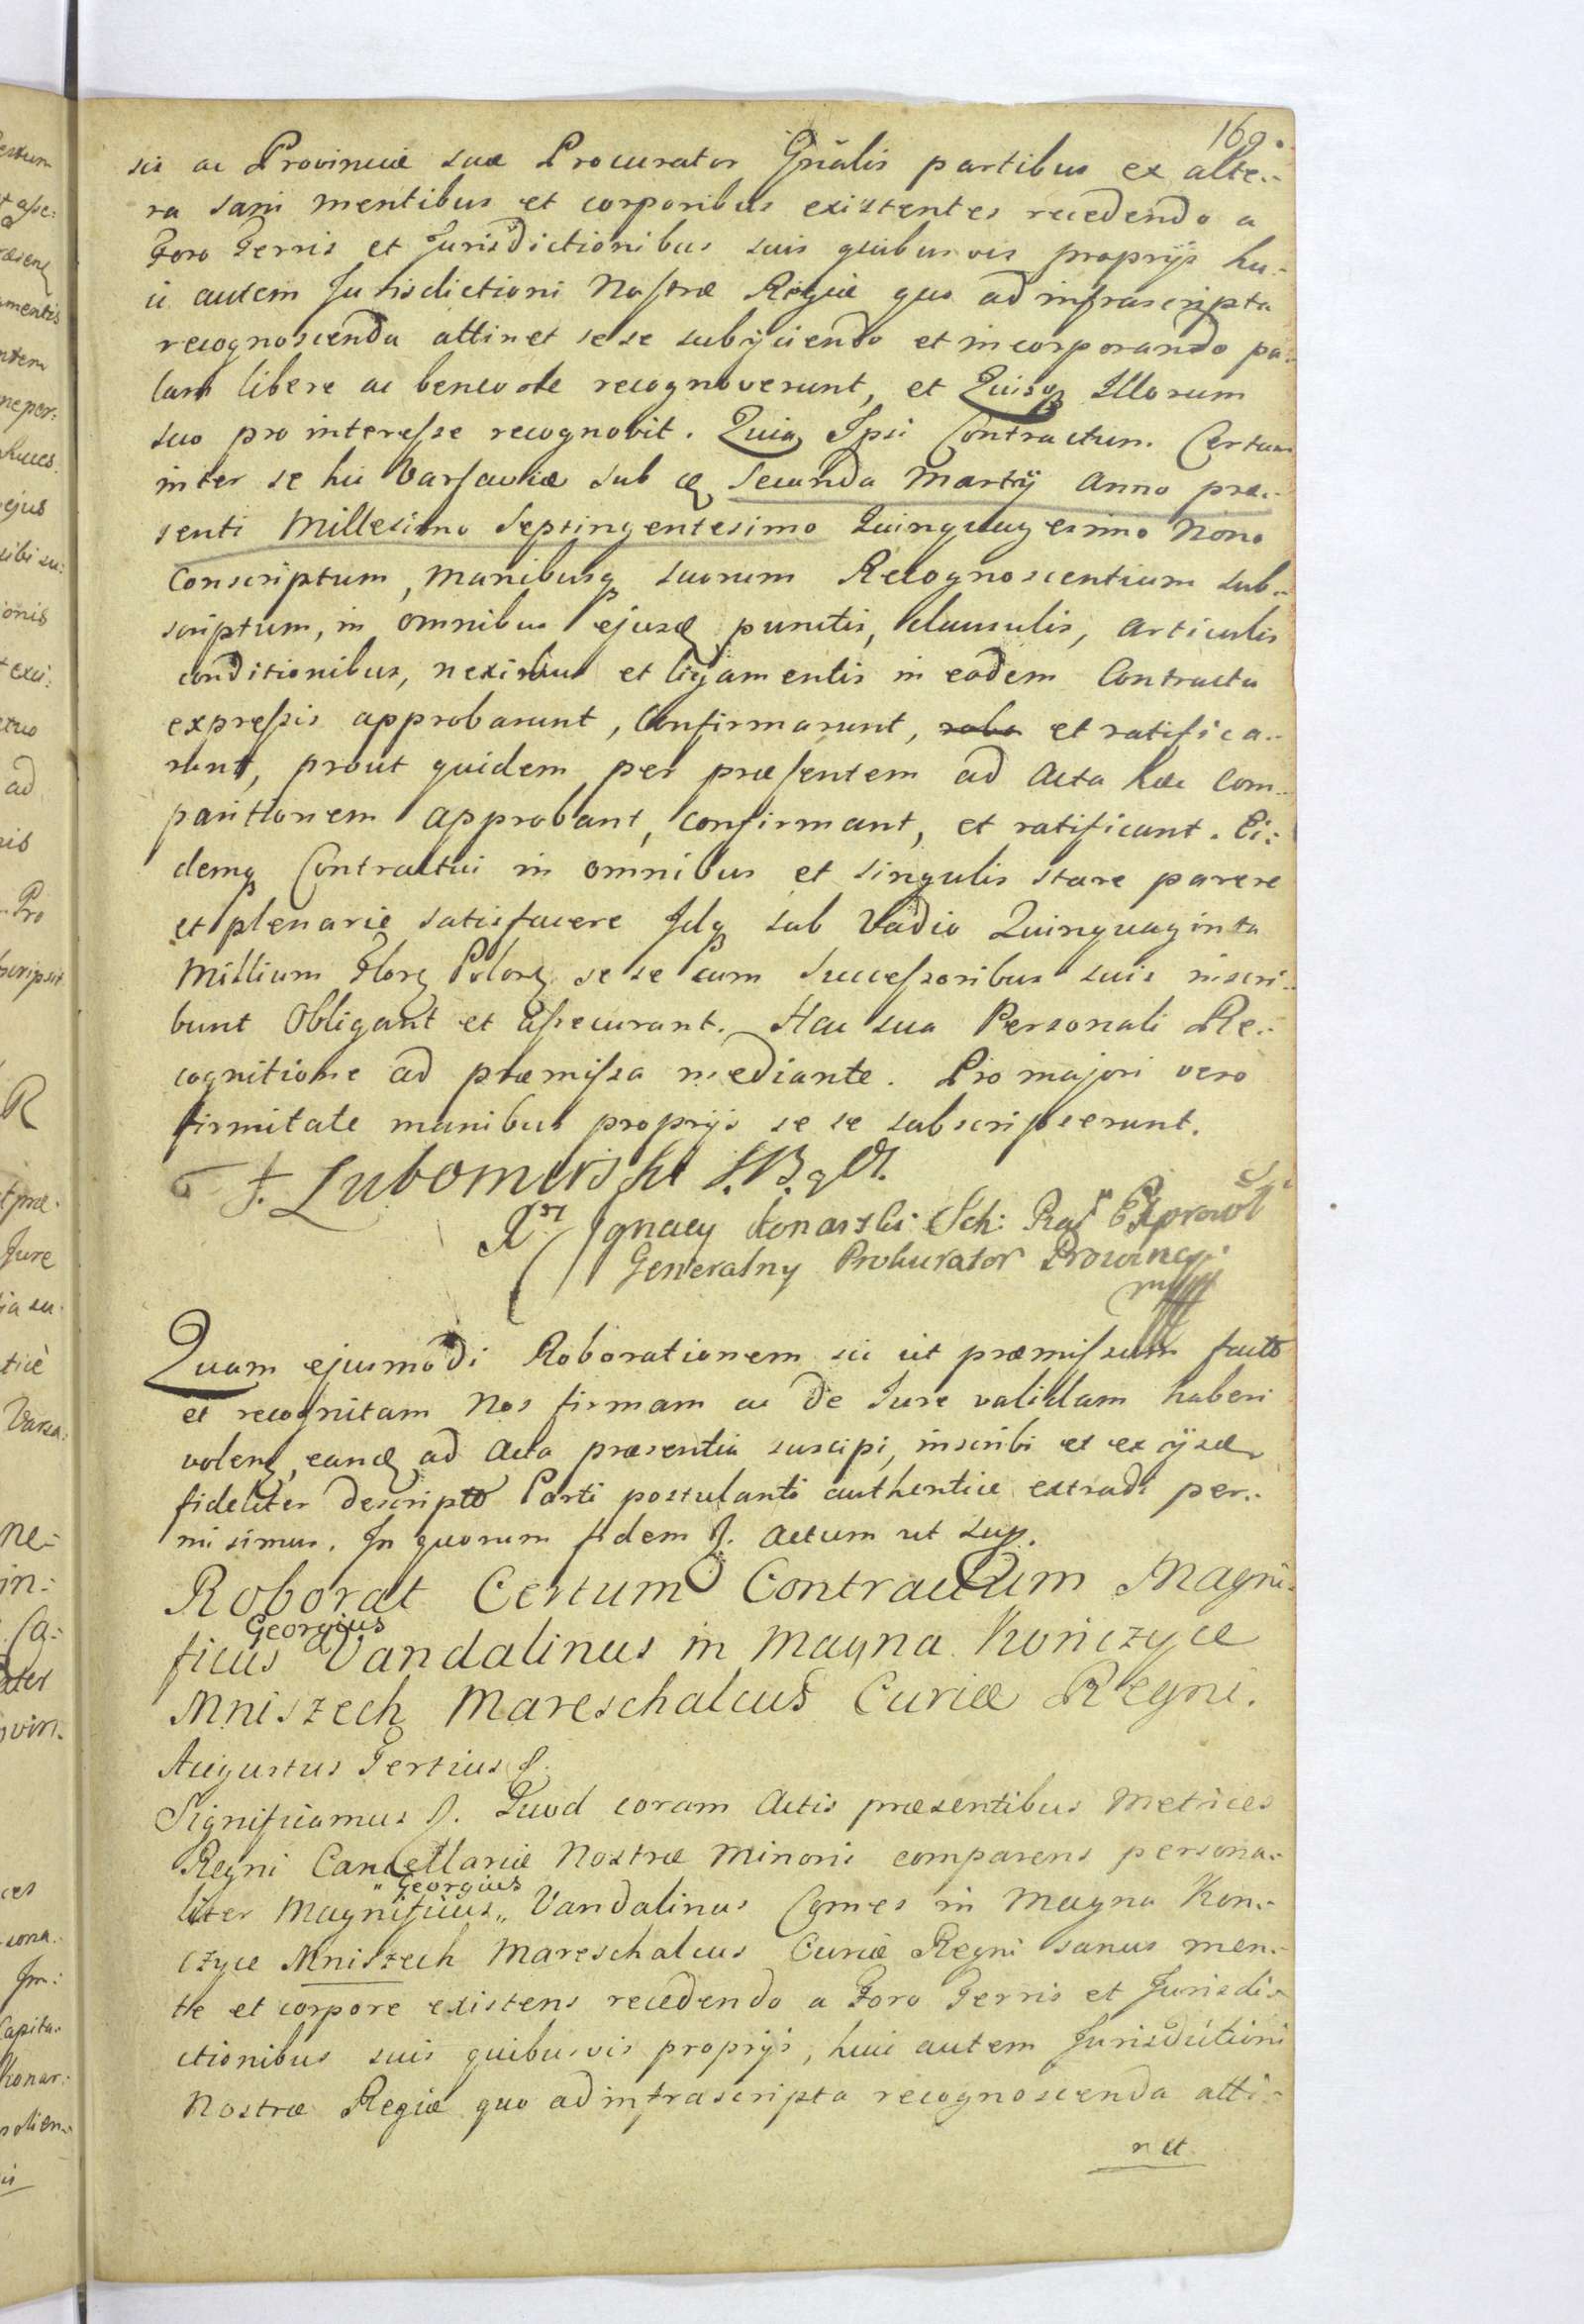 169.
sis ac Provinciæ suæ Procurator Gñalis partibus ex alte-
ra sani mentibus et corporibus existentes recedendo a
Foro Terris et Jurisdictionibus suis quibusvis proprijs hu-
ic autem Jurisdictioni Nostræ Regiæ quo ad infrascripta
recognoscenda attinet sese subijciendo et incorporando pa-
lam libere ac benevole recognoverunt, et Quisq Illorum
suo pro interesse recognovit. Quia Ipsi Contractum Certum
inter se hic Varsaviæ sub Secunda Martij Anno præ-
senti Millesimo Septingentesimo Quinquagesimo Nono
Conscriptum, manibusq suorum Recognoscentium sub-
scriptum, in omnibus ejusd punctis, clausulis, articulis
conditionibus, nexibus et ligamentis in eodem Contractu
expressis approbarunt, Confirmarunt, robo et ratifica-
runt, prout quidem per præsentem ad Acta hæc Com-
paritionem approbant, confirmant, et ratificant. Ei-
demq Contractui in omnibus et singulis stare parere
et plenarie satisfacere Idq sub Vadio Quinquaginta
Millium Flor Polon se se cum Successoribus suis inscri-
bunt Obligant et assecurant. Hac sua Personali Re-
cognitione ad præmissa mediante. Pro majori vero
firmitate manibus proprijs se se subscripserunt.
F. Lubomirski
Ignacy Konarski Sch: Exprowł
Generalny Prokurator Prowincyi
mpp
Quam ejusmodi Roborationem sic ut præmissum facto
et recognitam Nos firmam ac de Jure validam haberi
volen, eand ad Acta præsentia suscipi, inscribi et ex ijsd
fideliter descripto Parti postulanti authentice extradi per-
misimus. In quorum fidem &. Actum ut sup.
Roborat Certum Contractum Magni-
Georgius
ficus Vandalinus in Magna Kończyce
Mniszech Mareschalcus Curiæ Regni.
Augustus Tertius &.
Significamus &. Quod coram Actis præsentibus Metrices
Regni Cancellariæ Nostræ Minoris comparens persona-
„ Georgius
liter Magnificus „ Vandalinus Comes in Magna Kon-
czyce Mniszech Mareschalcus Curiæ Regni sanus men-
te et corpore existens recedendo a Foro Terris et Jurisdi-
ctionibus suis quibusvis proprijs, huic autem Jurisdictioni
Nostræ Regiæ quo ad infrascripta recognoscenda atti-
net